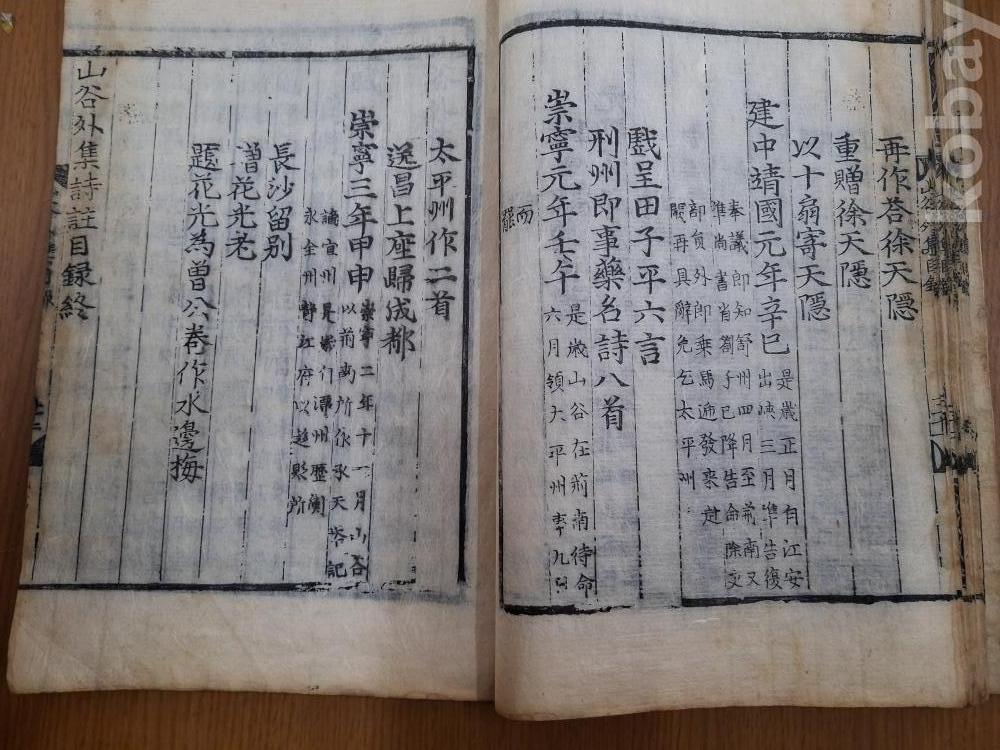 再作答徐天隱
重贈徐天隱
以十扇寄天隱
建中靖國元年辛巳
是歲正月自江安
出峽三月準告復
奉議郎知舒州四月至荊南又
準尚書省劄子已降告命除吏
部員外郎乘馬遞發來赴
闕再具辭免乞太平州
戲呈田子平六言
荊州即事藥名詩八首
崇寧元年壬午
是歲山谷在荊南待命
六月領太平州事九日
而罷
太平州作二首
送昌上座歸成都
崇寧三年甲申
崇寧二年十一月山谷
以荊南所作承天塔記
謫宜州是歲
永全州靜江府以趨貶所
長沙留別
贈花光老
題花光為曾公卷作水邊梅
山谷外集詩註目錄終
kobay